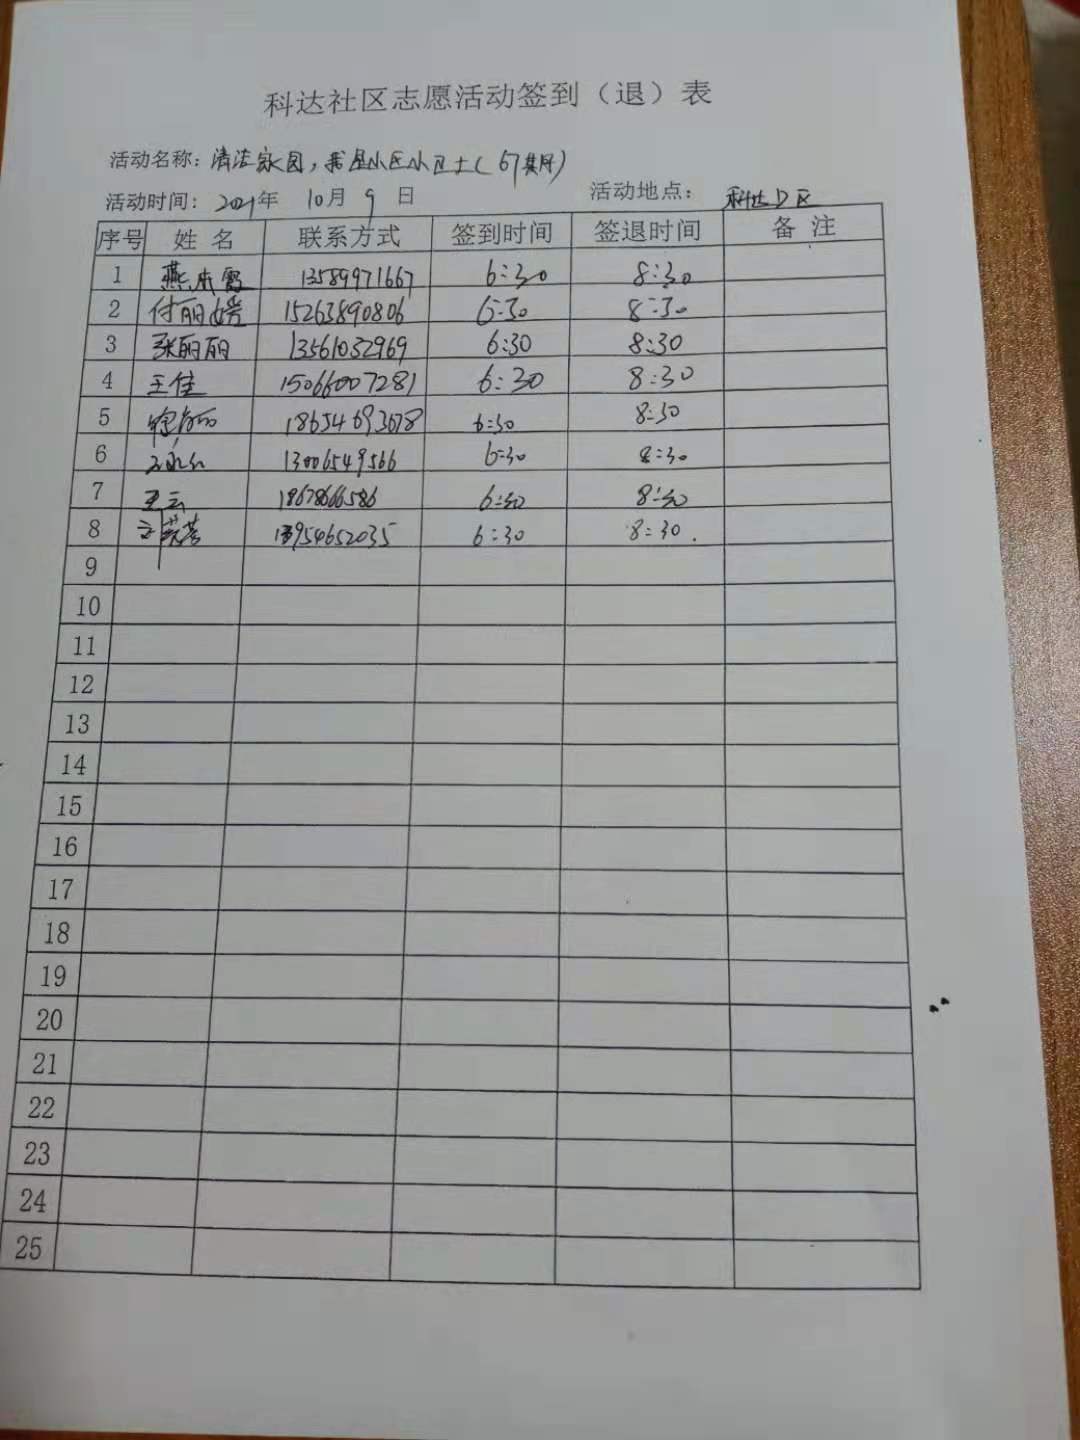 科达社区志愿活动签到（退）表
活动名称：清洁家园，我是小区小卫士（67期）
活动时间：2021年 10月 9 日 活动地点：科达小区
序号 姓名 联系方式 签到时间 签退时间 备注
1 燕 13589971667 6:30 8:30
2 付丽媛 15263890806 6:30 8:30
3 张丽丽 13561032969 6:30 8:30
4 王佳 15066007281 6:30 8:30
5 18654693678 6:30 8:30
6 13006549566 6:30 8:30
7 王云 18678666586 6:30 8:30
8 13954652035 6:30 8:30.
9
10
11
12
13
14
15
16
17
18
19
20
21
22
23
24
25